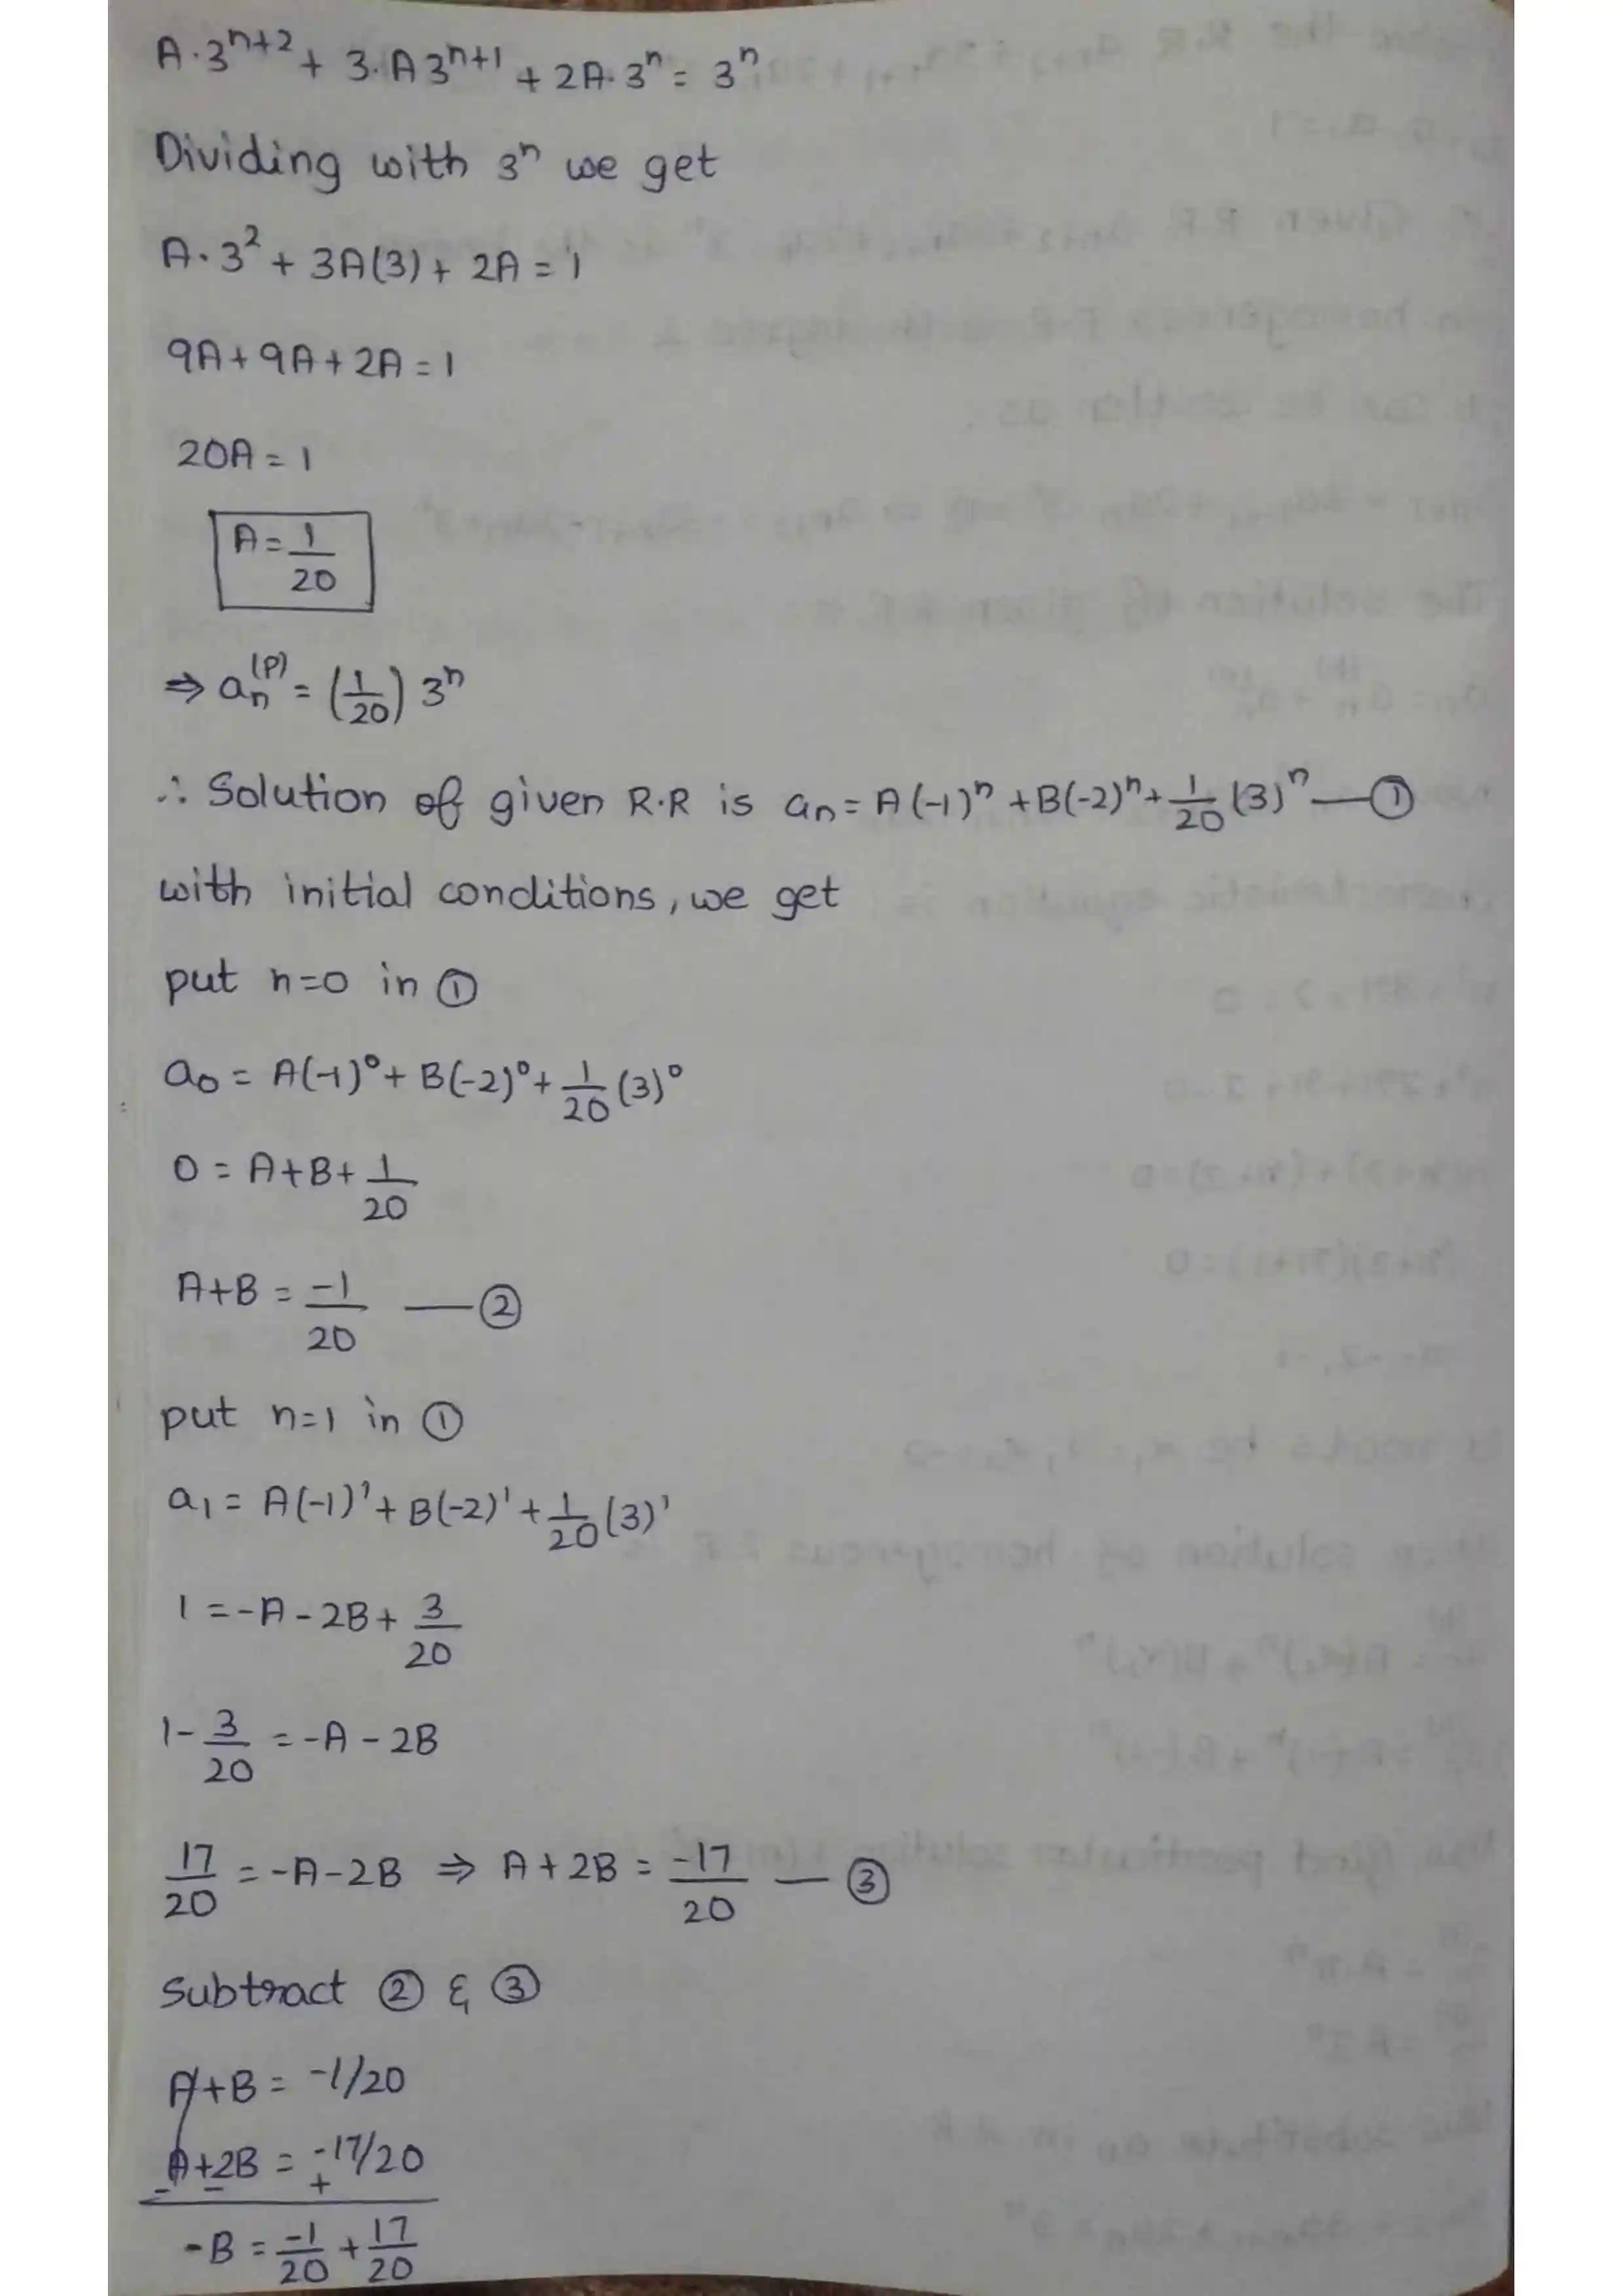 A·3^{n+2} + 3·A3^{n+1} + 2A·3^n = 3^n
Dividing with 3^n we get
A·3^2 + 3A(3) + 2A = 1
9A + 9A + 2A = 1
20A = 1
A = 1/20
⇒ a_n^{(P)} = (1/20) 3^n
∴ Solution of given R.R is a_n = A(-1)^n + B(-2)^n + 1/20 (3)^n — ①
with initial conditions, we get
put n=0 in ①
a_0 = A(-1)^0 + B(-2)^0 + 1/20 (3)^0
0 = A+B+ 1/20
A+B = -1/20 — ②
put n=1 in ①
a_1 = A(-1)^1 + B(-2)^1 + 1/20 (3)^1
1 = -A - 2B + 3/20
1 - 3/20 = -A - 2B
17/20 = -A-2B ⇒ A+2B = -17/20 — ③
Subtract ② & ③
A+B = -1/20
A+2B = -17/20
- - +
-B = -1/20 + 17/20